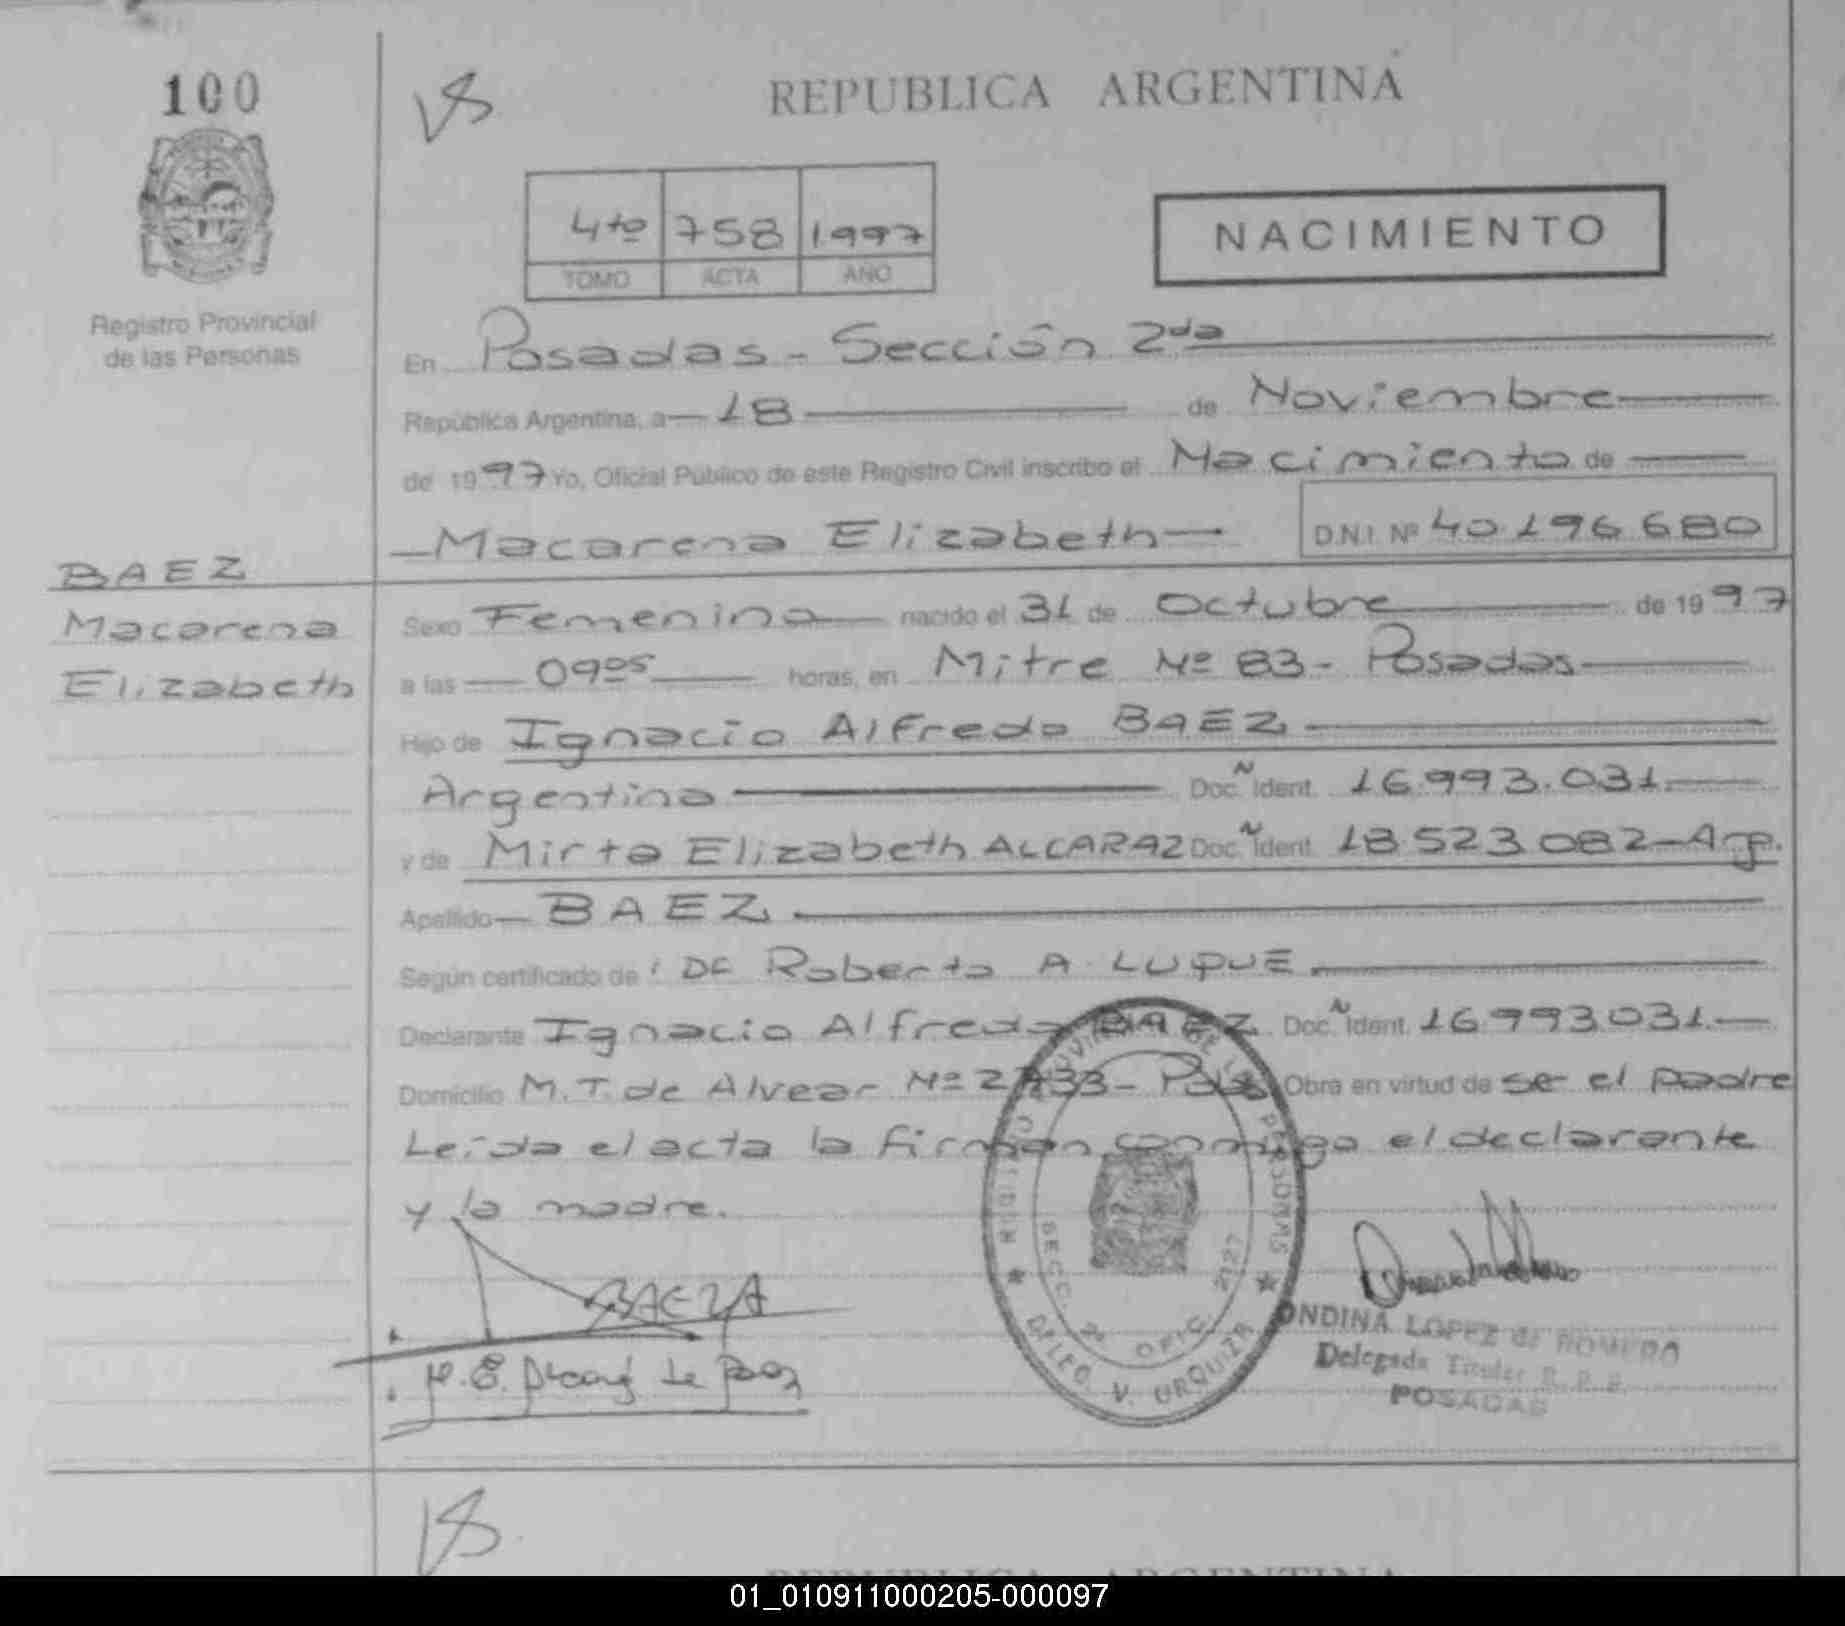 100
VS
REPUBLICA ARGENTINA
4to 758 1997
TOMO ACTA AÑO
NACIMIENTO
Registro Provincial
de las Personas
En Posadas - Sección 2da
República Argentina, a 18 de Noviembre
de 1997 Yo, Oficial Público de este Registro Civil inscribo el Nacimiento de
Macarena Elizabeth D.N.I. Nº 40.196.680
BAEZ
Macarena
Elizabeth
Sexo Femenino nacido el 31 de Octubre de 1997
a las 09 05 horas, en Mitre Nº 83 - Posadas
Hijo de Ignacio Alfredo BAEZ
Argentina Doc. Ñ Ident. 16.993.031.
y de Mirta Elizabeth ALCARAZ Doc. Ñ Ident. 18.523.082 - Arg.
Apellido BAEZ
Según certificado de: Dr Roberto A. LUQUE
Declarante Ignacio Alfredo BAEZ Doc. Ñ Ident. 16.993.031.
Domicilio M. T. de Alvear Nº Obra en virtud de se el padre
Leída el acta la firman conmigo el declarante
y la madre.
BAEZ A
M. E. de Baez
DE LAS PERSONAS
SECC. 2ª OFIC. 2127
DELEG. V. URQUIZA
ONDINA LOPEZ de ROMERO
Delegada Titular R. P. P.
POSADAS
VS
REPUBLICA ARGENTINA
01_010911000205-000097